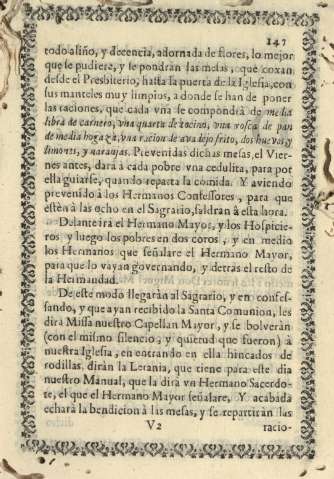 147
todo aliño, y decencia, adornada de flores, lo mejor
que se pudiere, y se pondràn las mesas, que coxan
desde el Presbiterio, hasta la puerta de la Iglesia, con
sus manteles muy limpios, a donde se han de poner
las raciones, que cada vna se compondrà de media
libra de carnero, vna quarta de tocino, vna rosca de pan
de media hogaza, vna racion de ava dejo frito, dos huevos, y
limones, y naranjas. Prevenidas dichas mesas, el Vier-
nes antes, darà à cada pobre vna cedulita, para por
ella guiarse, quando reparta la comida. Y aviendo
prevenido à los Hermanos Confessores, para que
estèn à las ocho en el Sagrario, saldràn à esta hora.
Delante irà el Hermano Mayor, y los Hospicie-
ros y luego los pobres en dos coros, y en medio
los Hermanos que señalare el Hermano Mayor,
para que lo vayan governando, y detras el resto de
la Hermandad.
De este modo llegaràn al Sagrario, y en confes-
sando, y que ayan recibido la Santa Comunion, les
dirà Missa nuestro Capellan Mayor, y se bolveràn
(con el mismo silencio, y quietud que fueron) à
nuestra Iglesia, en entrando en ella hincados de
rodillas, diràn la Letania, que tiene para este dia
nuestro Manual, que la dirà vn Hermano Sacerdo-
te, el que el Hermano Mayor señalare, Y acabada
echarà la bendicion à las mesas, y se repartiràn las
V2 racio-